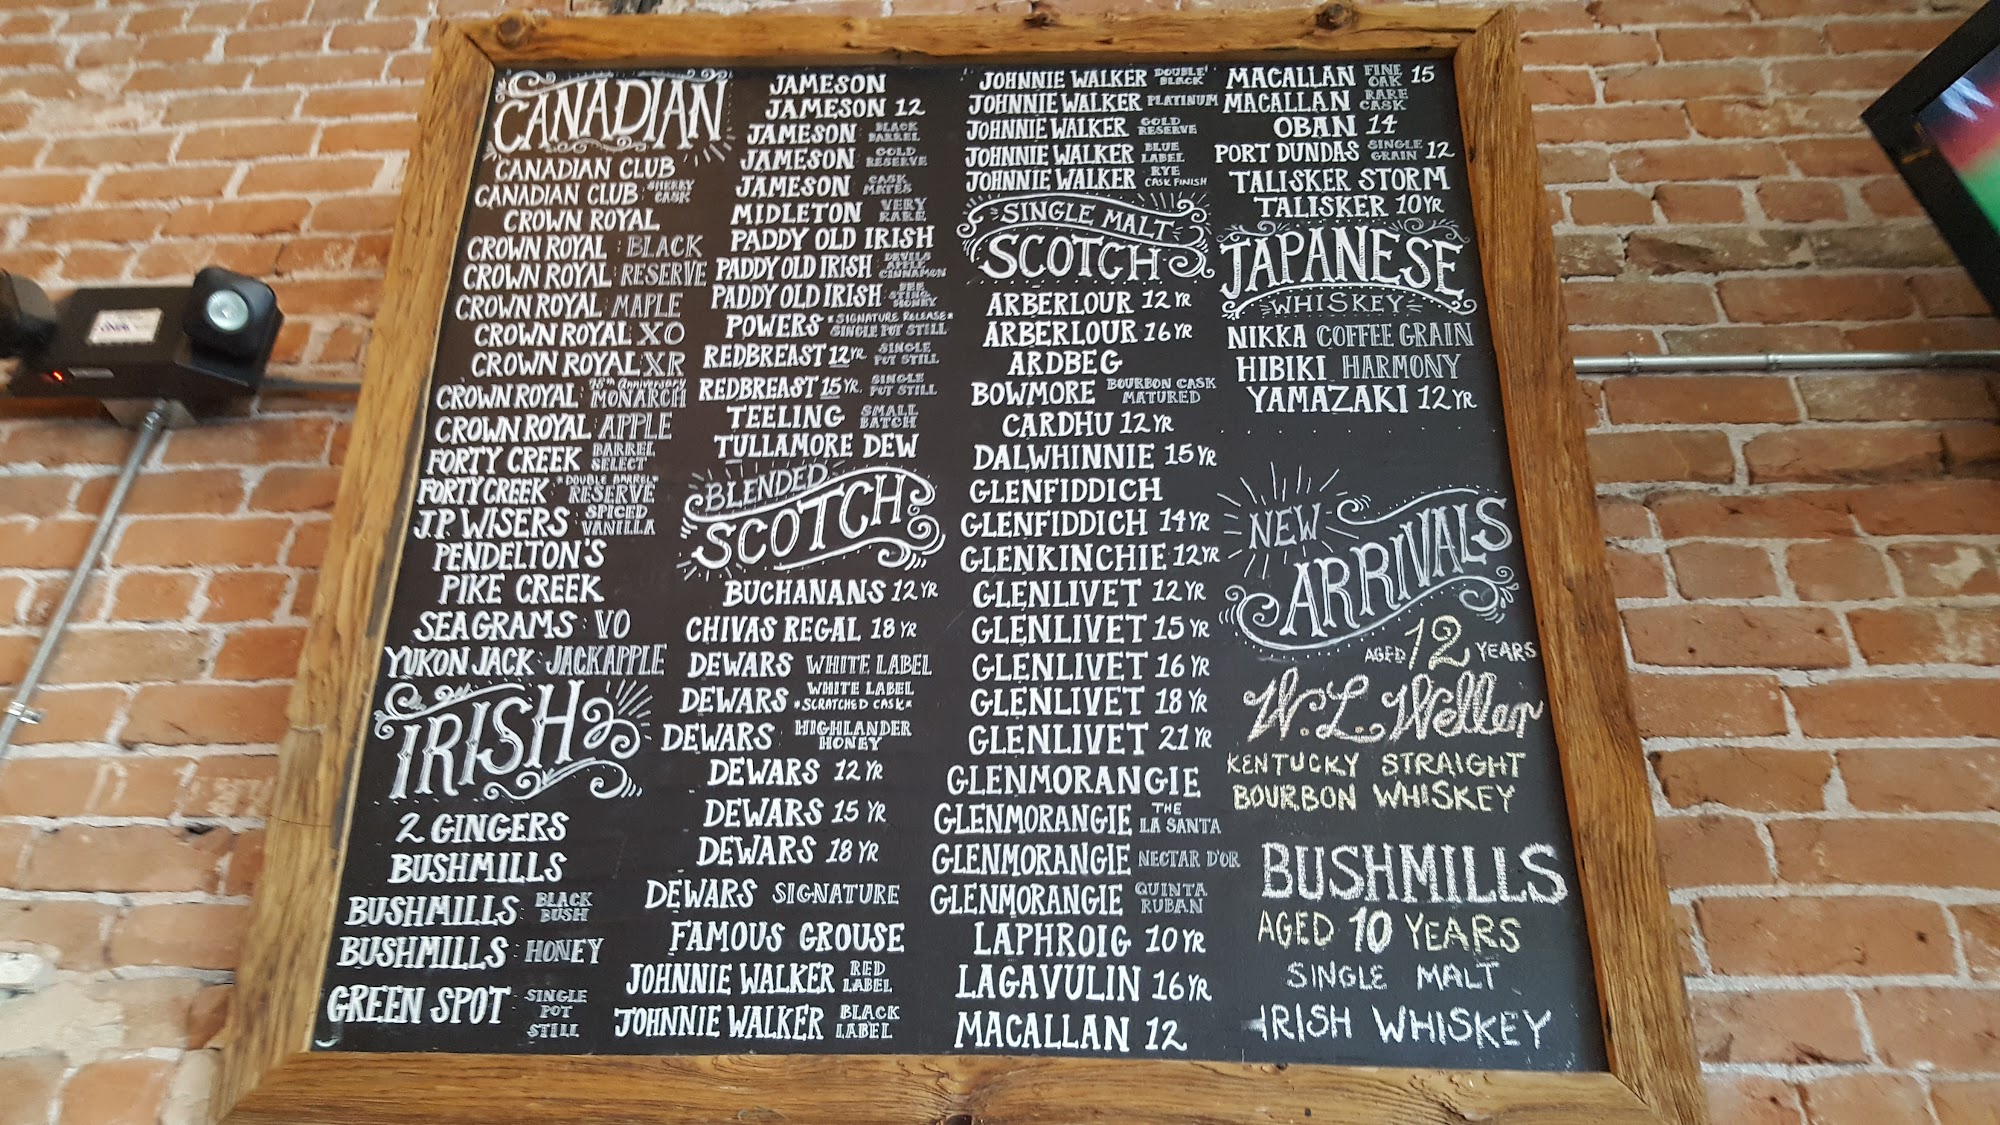 CANADIAN
CANADIAN CLUB
CANADIAN CLUB SHERRY CASK
CROWN ROYAL
CROWN ROYAL BLACK
CROWN ROYAL RESERVE
CROWN ROYAL MAPLE
CROWN ROYAL XO
CROWN ROYAL XR
CROWN ROYAL 75th Anniversary MONARCH
CROWN ROYAL APPLE
FORTY CREEK BARREL SELECT
FORTY CREEK *DOUBLE BARREL* RESERVE
J.P. WISERS SPICED VANILLA
PENDELTON'S
PIKE CREEK
SEAGRAMS VO
YUKON JACK JACKAPPLE
IRISH
2 GINGERS
BUSHMILLS
BUSHMILLS BLACK BUSH
BUSHMILLS HONEY
GREEN SPOT SINGLE POT STILL
JAMESON
JAMESON 12
JAMESON BLACK BARREL
JAMESON GOLD RESERVE
JAMESON CASK MATES
MIDLETON VERY RARE
PADDY OLD IRISH
PADDY OLD IRISH DEVILS APPLE CINNAMON
PADDY OLD IRISH BEE STING HONEY
POWERS *SIGNATURE RELEASE* SINGLE POT STILL
REDBREAST 12 YR. SINGLE POT STILL
REDBREAST 15 YR. SINGLE POT STILL
TEELING SMALL BATCH
TULLAMORE DEW
BLENDED
SCOTCH
BUCHANANS 12 YR
CHIVAS REGAL 18 YR
DEWARS WHITE LABEL
DEWARS WHITE LABEL *SCRATCHED CASK*
DEWARS HIGHLANDER HONEY
DEWARS 12 YR
DEWARS 15 YR
DEWARS 18 YR
DEWARS SIGNATURE
FAMOUS GROUSE
JOHNNIE WALKER RED LABEL
JOHNNIE WALKER BLACK LABEL
JOHNNIE WALKER DOUBLE BLACK
JOHNNIE WALKER PLATINUM
JOHNNIE WALKER GOLD RESERVE
JOHNNIE WALKER BLUE LABEL
JOHNNIE WALKER RYE CASK FINISH
SINGLE MALT
SCOTCH
ARBERLOUR 12 YR
ARBERLOUR 16 YR
ARDBEG
BOWMORE BOURBON CASK MATURED
CARDHU 12 YR
DALWHINNIE 15 YR
GLENFIDDICH
GLENFIDDICH 14 YR
GLENKINCHIE 12 YR
GLENLIVET 12 YR
GLENLIVET 15 YR
GLENLIVET 16 YR
GLENLIVET 18 YR
GLENLIVET 21 YR
GLENMORANGIE
GLENMORANGIE THE LA SANTA
GLENMORANGIE NECTAR D'OR
GLENMORANGIE QUINTA RUBAN
LAPHROIG 10 YR
LAGAVULIN 16 YR
MACALLAN 12
MACALLAN FINE OAK 15
MACALLAN RARE CASK
OBAN 14
PORT DUNDAS SINGLE GRAIN 12
TALISKER STORM
TALISKER 10 YR.
JAPANESE
WHISKEY
NIKKA COFFEE GRAIN
HIBIKI HARMONY
YAMAZAKI 12 YR
NEW
ARRIVALS
AGED 12 YEARS
W.L. Weller
KENTUCKY STRAIGHT
BOURBON WHISKEY
BUSHMILLS
AGED 10 YEARS
SINGLE MALT
IRISH WHISKEY